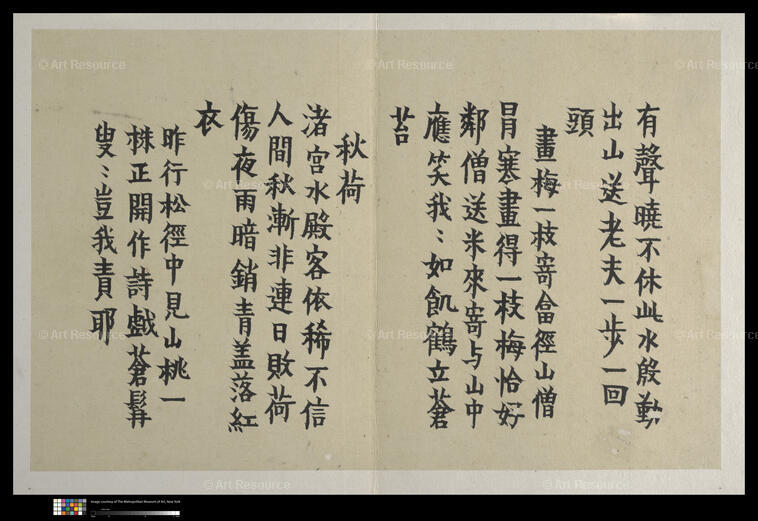 有聲曉不休此水殷勤
出山送老夫一步一回
頭
畫梅一枝寄畬徑山僧
冒寒畫得一枝梅恰好
鄰僧送米來寄与山中
應笑我〻如飢鶴立蒼
苔
秋荷
渚宮水殿客依稀不信
人間秋漸非連日敗荷
傷夜雨暗銷青盖落紅
衣
昨行松徑中見山桃一
株正開作詩戲蒼髯
叟〻豈我責耶
© Art Resource
© Art Resource
© Art Resource
© Art Resource
© Art Resource
© Art Resource
© Art Resource
© Art Resource
© Art Resource
© Art Resource
© Art Resource
© Art Resource
Image courtesy of The Metropolitan Museum of Art, New York